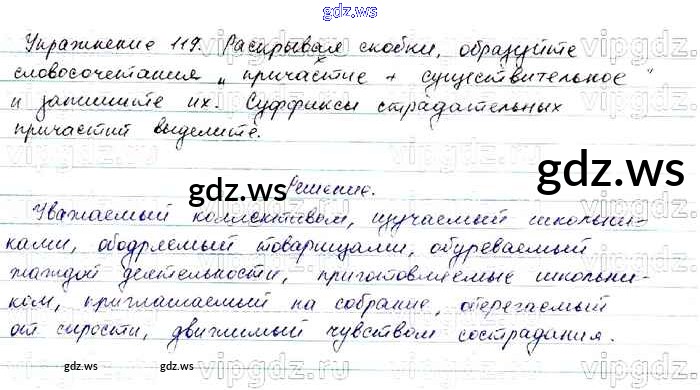 gdz.ws
Упражнение 119. Раскрывая скобки, образуйте
словосочетания „причастие + существительное“
и запишите их. Суффиксы страдательных
причастий выделите.
gdz.ws
gdz.ws
Решение.
Уважаемый коллективом, изучаемый школьни-
ками, ободряемый товарищами, обуреваемый
жаждой деятельности, приготовляемые школьни-
ком, приглашаемый на собрание, оберегаемый
от сырости, движимый чувством сострадания.
gdz.ws
gdz.ws
vipgdz.ru